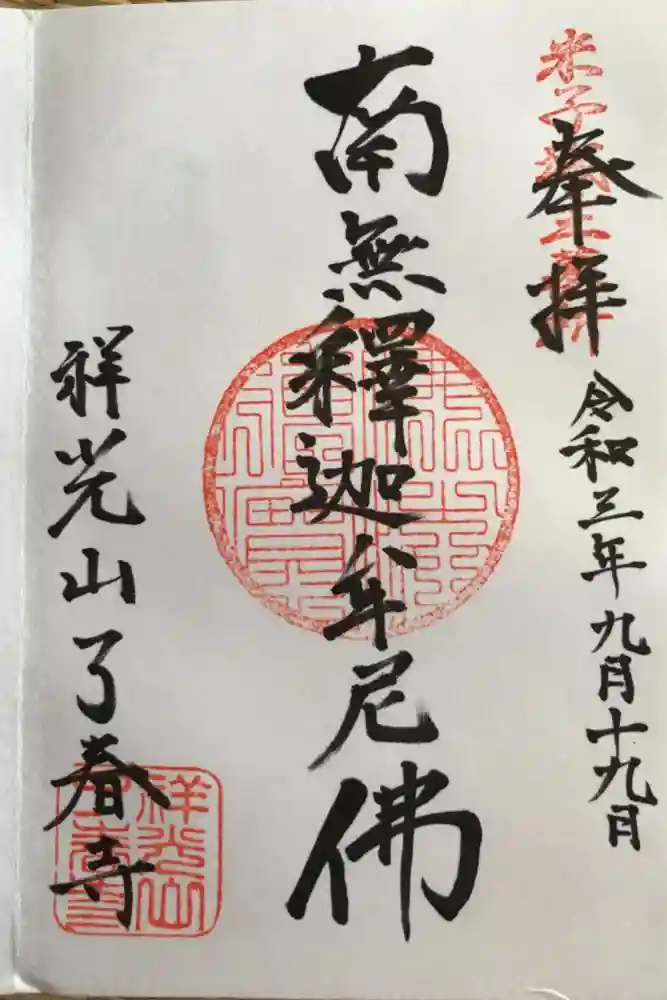 奉拝
令和三年九月十九日
南無釋迦牟尼佛
祥光山了春寺
祥光山